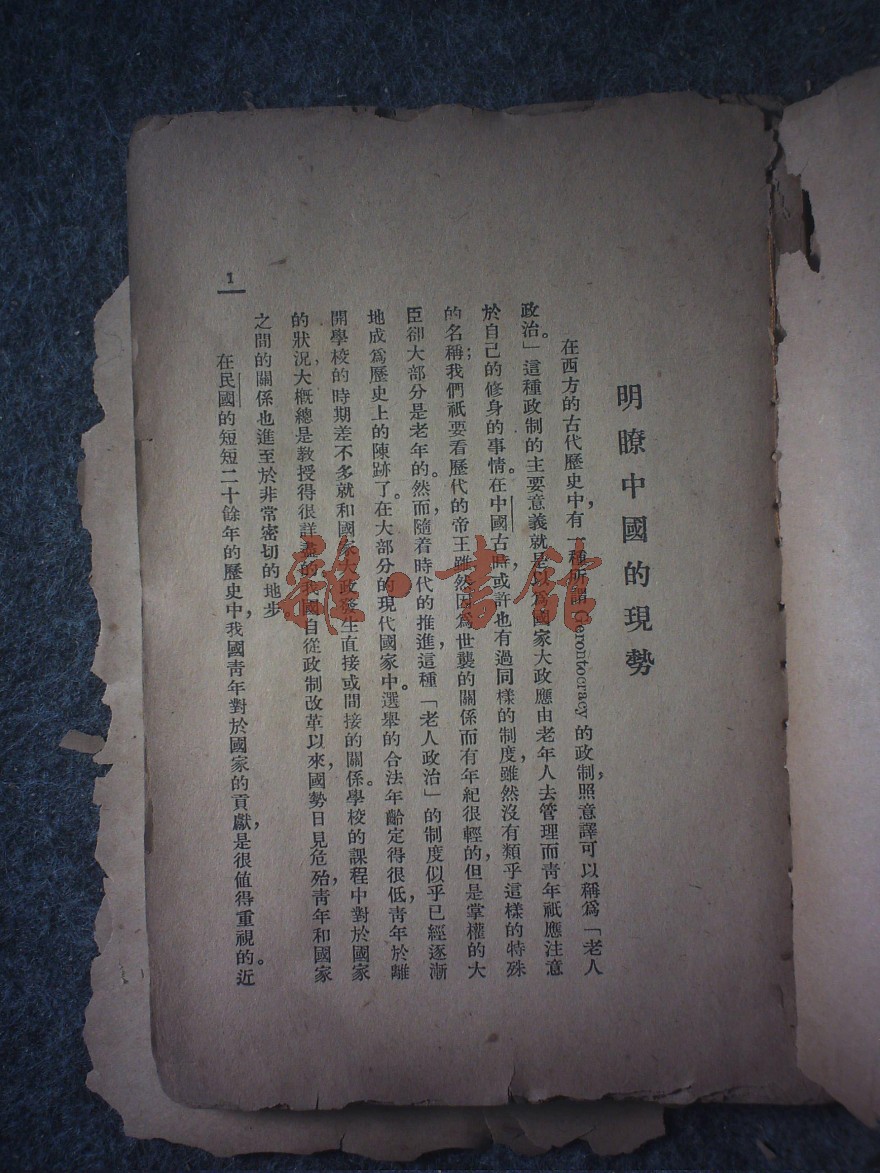 明瞭中國的現勢
在西方的古代歷史中，有一種所謂 Gerontocracy 的政制，照意譯可以稱爲「老人
政治。」這種政制的主要意義就是以爲國家大政應由老年人去管理而靑年祇應注意
於自己的修身的事情。在中國古時，或許也有過同樣的制度，雖然沒有類乎這樣的特殊
的名稱；我們祇要看歷代的帝王雖然因爲世襲的關係而有年紀很輕的，但是掌權的大
臣卻大部分是老年的。然而，隨着時代的推進，這種「老人政治」的制度似乎已經逐漸
地成爲歷史上的陳跡了。在大部分的現代國家中，選舉的合法年齡定得很低，靑年於離
開學校的時期差不多就和國家大政發生直接或間接的關係。學校的課程中對於國家
的狀況，大概總是教授得很詳盡的。我國自從政制改革以來，國勢日見危殆，靑年和國家
之間的關係也進至於非常密切的地步。
在民國的短短二十餘年的歷史中，我國靑年對於國家的貢獻，是很值得重視的。近
1
雜·書館